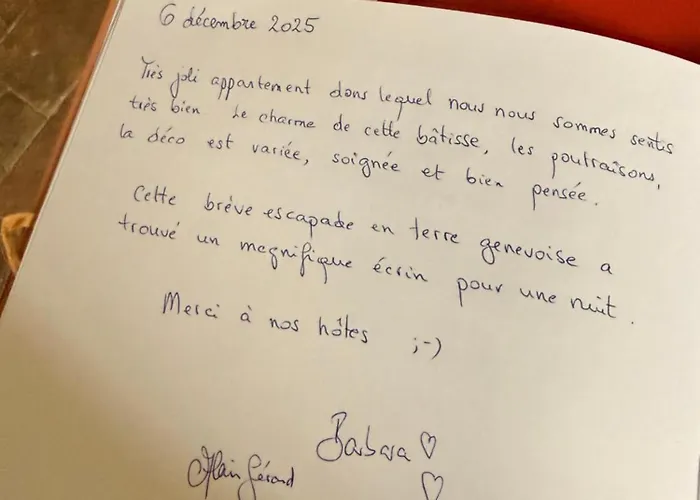 6 décembre 2025
Très joli appartement dans lequel nous nous sommes sentis
très bien Le charme de cette bâtisse, les poutraisons,
la déco est variée, soignée et bien pensée.
Cette brève escapade en terre genevoise a
trouvé un magnifique écrin pour une nuit.
Merci à nos hôtes ;-)
Barbara ♡
Alain Gérard ♡